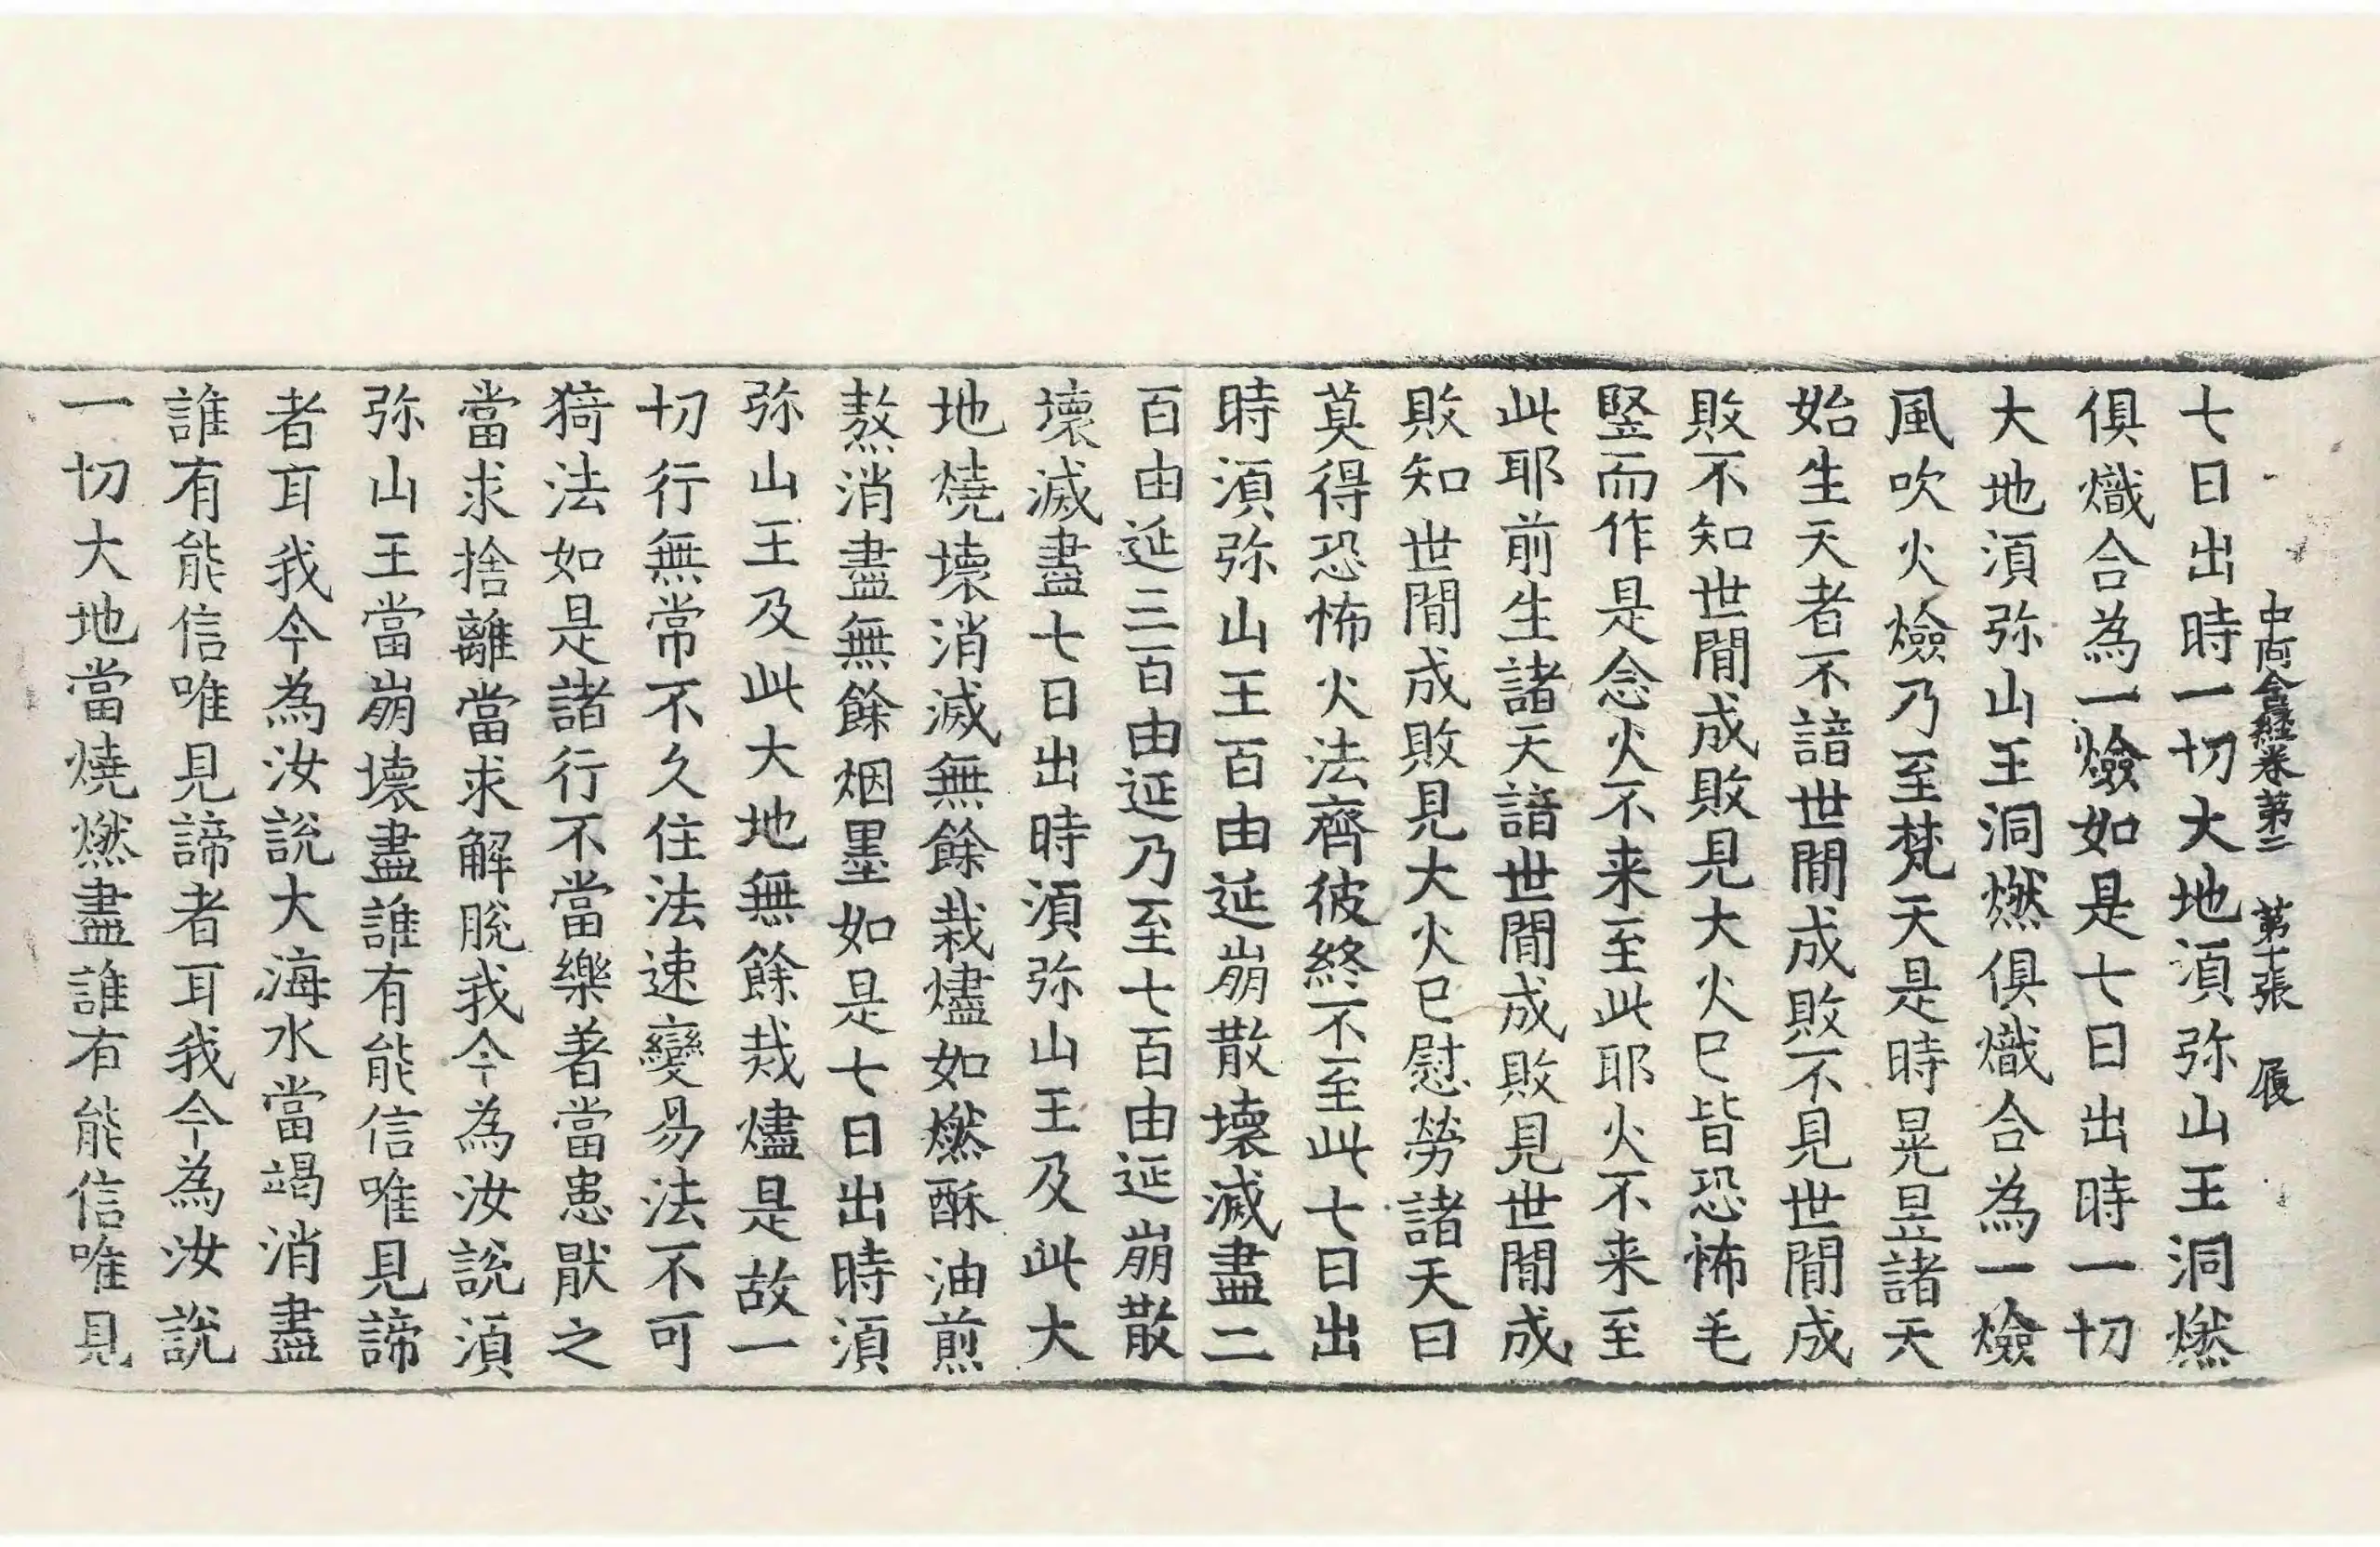 中阿含經卷第二 第十張 履
七日出時一切大地湏弥山王洞燃
俱熾合為一㷿如是七日出時一切
大地湏弥山王洞燃俱熾合為一㷿
風吹火㷿乃至梵天是時晃昱諸天
始生天者不諳世閒成敗不見世閒成
敗不知世閒成敗見大火已皆恐怖毛
竪而作是念火不来至此耶火不来至
此耶前生諸天諳世閒成敗見世閒成
敗知世閒成敗見大火已慰勞諸天曰
莫得恐怖火法齊彼終不至此七日出
時湏弥山王百由延崩散壞滅盡二
百由延三百由延乃至七百由延崩散
壞滅盡七日出時湏弥山王及此大
地燒壞消滅無餘栽燼如燃酥油煎
熬消盡無餘烟墨如是七日出時湏
弥山王及此大地無餘栽燼是故一
切行無常不久住法速變易法不可
猗法如是諸行不當樂著當患猒之
當求捨離當求解脫我今為汝說湏
弥山王當崩壞盡誰有能信唯見諦
者耳我今為汝說大海水當竭消盡
誰有能信唯見諦者耳我今為汝說
一切大地當燒燃盡誰有能信唯見